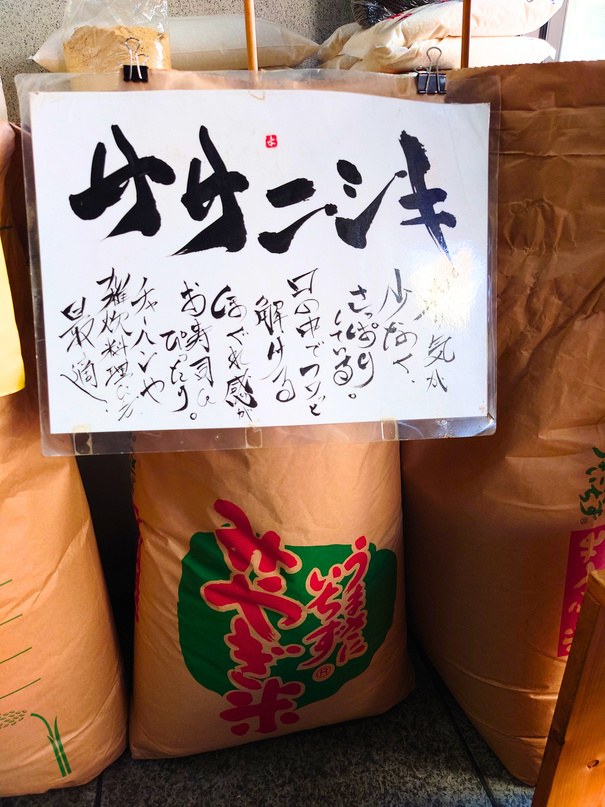 ササニシキ
よ
気が
少なく、
さっぱり
している。
口の中でフワッと
解ける
ほぐれ感が
お寿司に
ぴったり。
チャーハンや
雑炊料理にも
最適
うまさに
いちず
みやぎ米